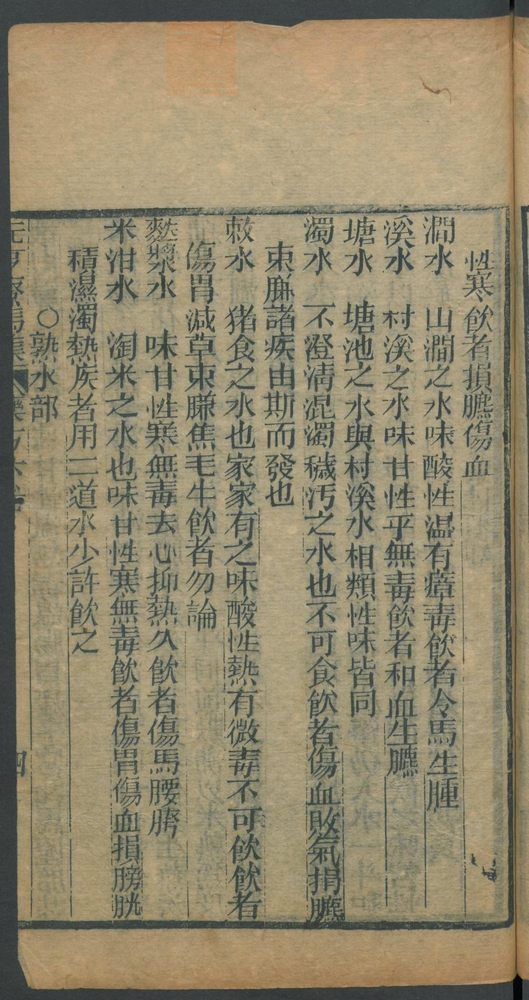 性寒飲者損臕傷血
澗水 山澗之水味酸性温有瘴毒飲者令馬生腫
溪水 村溪之水味甘性平無毒飲者和血生臕
塘水 塘池之水與村溪水相類性味皆同
濁水 不澄清混濁穢汚之水也不可食飲者傷血敗氣損臕
束膁諸疾由斯而發也
水 猪食之水也家家有之味酸性熱有微毒不可飲飲者
傷胃減草束膁焦毛牛飲者勿論
漿水 味甘性寒無毒去心抑熱久飲者傷馬腰胯
米泔水 淘米之水也味甘性寒無毒飲者傷胃傷血損膀胱
積濕濁熱疾者用二道水少許飲之
○熟水部
元亨療馬集 四